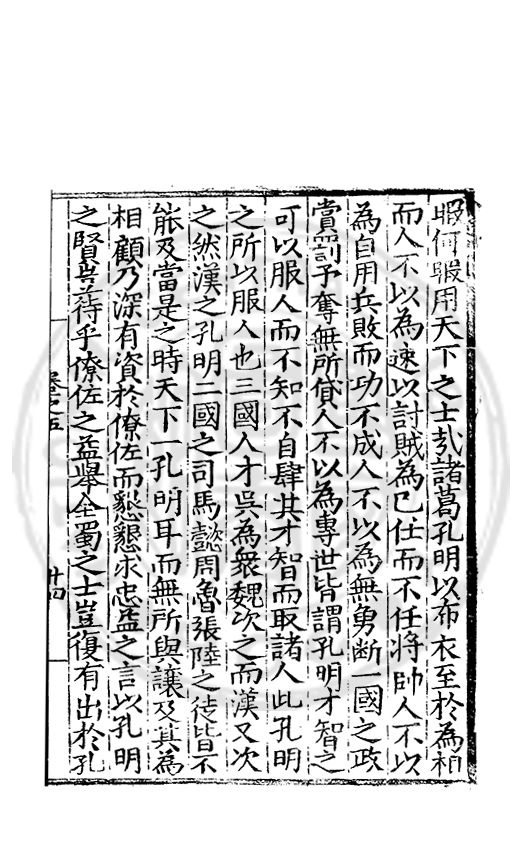 暇何暇用天下之士㢤諸葛孔明以布衣至於為相
而人不以為速以討賊為己任而不任將帥人不以
為自用兵敗而功不成人不以為無勇斷一國之政
賞罰予奪無所貸人不以為專世皆謂孔明才智之
可以服人而不知不自肆其才智而取諸人此孔明
之所以服人也三國人才吳為衆魏次之而漢又次
之然漢之孔明二國之司馬懿周魯張陸之徒皆不
能及當是之時天下一孔明耳而無所與讓及其為
相顧乃深有資於僚佐而懇懇求忠益之言以孔明
之賢豈待乎僚佐之益舉全蜀之士豈復有出於孔
卷之五
廿四